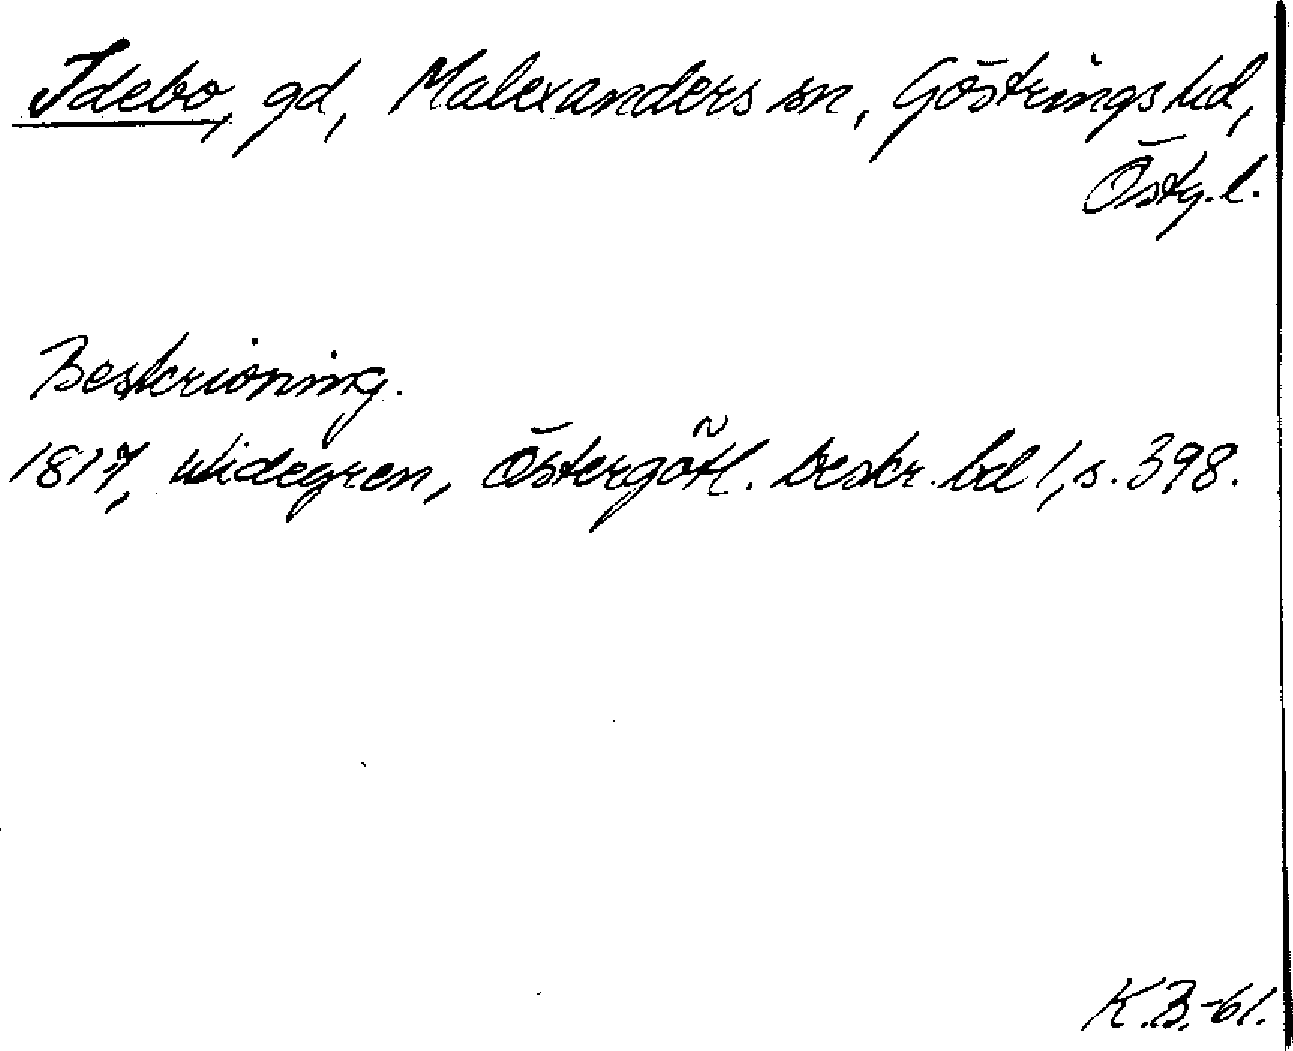 Idebo, gd, Malexanders sn, Göstrings hd,
Östg. l.
Beskrivning.
1817, Widegren, Östergötl. beskr. bd 1, s. 398.
K.B.-61.